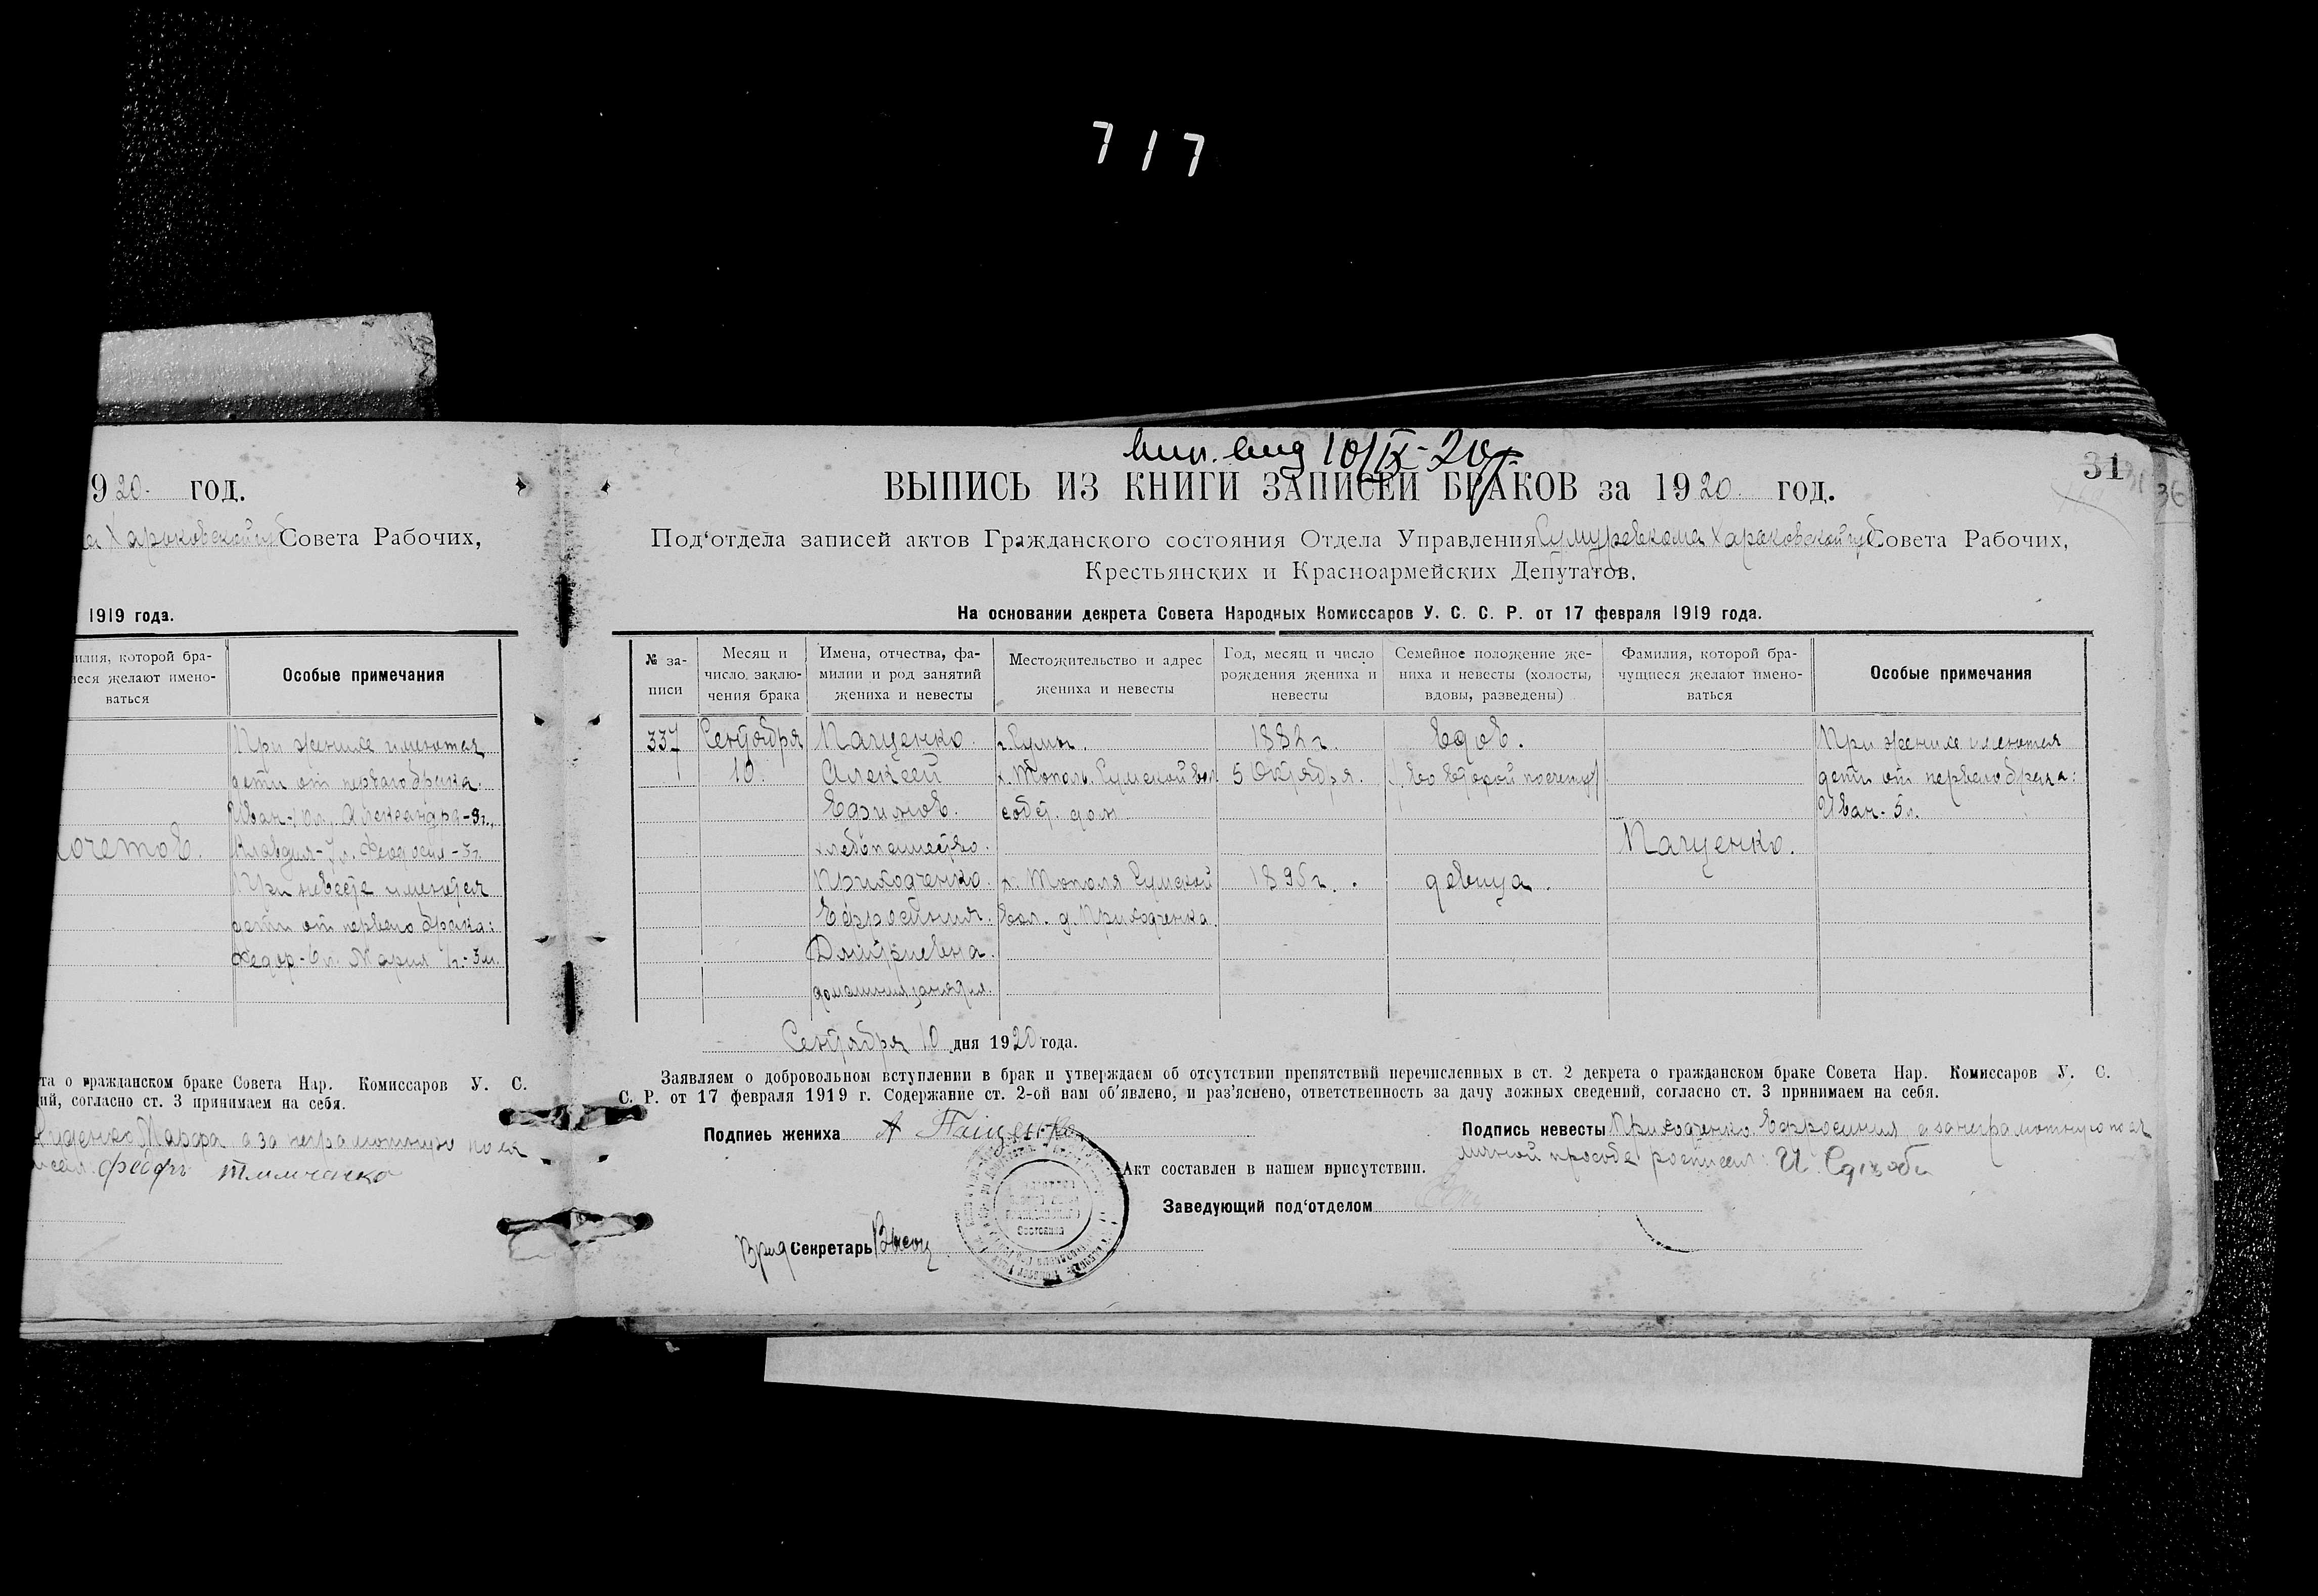 717
920 год.
Совета Рабочих,
1919 года.
илия, которой бра-
иеся желают имено-
ваться
Особые примечания
При женихе имеются
дети от первого брака.
Иван Александра
Клавдия Феодосия
При невесте имеются
дети от первого брака:
Федор Мария
очетов.
та о гражданском браке Совета Нар. Комиссаров У. С.
ий, согласно ст. 3 принимаем на себя.
Марфа а за неграмотную по ея
Тимченко
10/IX-20г.
31
36
ВЫПИСЬ ИЗ КНИГИ ЗАПИСЕЙ БРАКОВ за 1920 год.
Под‘отдела записей актов Гражданского состояния Отдела Управления Сумуревкома Харьковской губ Совета Рабочих,
Крестьянских и Красноармейских Депутатов.
На основании декрета Совета Народных Комиссаров У. С. С. Р. от 17 февраля 1919 года.
№ за-
писи
Месяц и
число, заклю-
чения брака
Имена, отчества, фа-
милии и род занятий
жениха и невесты
Местожительство и адрес
жениха и невесты
Год, месяц и число
рождения жениха и
невесты
Семейное положение же-
ниха и невесты (холосты,
вдовы, разведены)
Фамилия, которой бра-
чущиеся желают имено-
ваться
Особые примечания
337 Сентября Пащенко. г. Сумы. 1882 г. вдов. При женихе имеются
10. Алексей х. Тополь. Сумской вол 5 Октября. во второй дети от первого брака:
Ефимов. собст. дом Иван - 5 л.
хлебопашество. Пащенко.
Приходченко. х. Тополя Сумской девица.
Ефросиния. вол. д. Приходченка.
Дмитриевна.
домашния занятия.
Сентября 10 дня 1920 года.
Заявляем о добровольном вступлении в брак и утверждаем об отсутствии препятствий перечисленных в ст. 2 декрета о гражданском браке Совета Нар. Комиссаров У. С.
С. Р. от 17 февраля 1919 г. Содержание ст. 2-ой нам об‘явлено, и раз‘яснено, ответственность за дачу ложных сведений, согласно ст. 3 принимаем на себя.
Подпись жениха А Пащенко
Подпись невесты Приходченко Ефросиния а за неграмотную по ея
личной просьбе росписал И.
Акт составлен в нашем присутствии.
Заведующий под‘отделом
Врид Секретарь
состояния